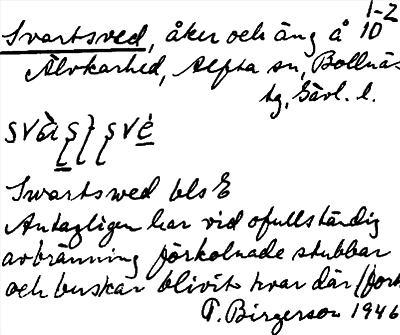 1-2
Svartsved, åker och äng å 10
Älvkarhed, Alfta sn, Bollnäs
tg, Gävl. l.
Swartswed bls E
Antagligen har vid ofullständig
avbränning förkolnade stubbar
och buskar blivit kvar där (fort
T. Birgerson 1946